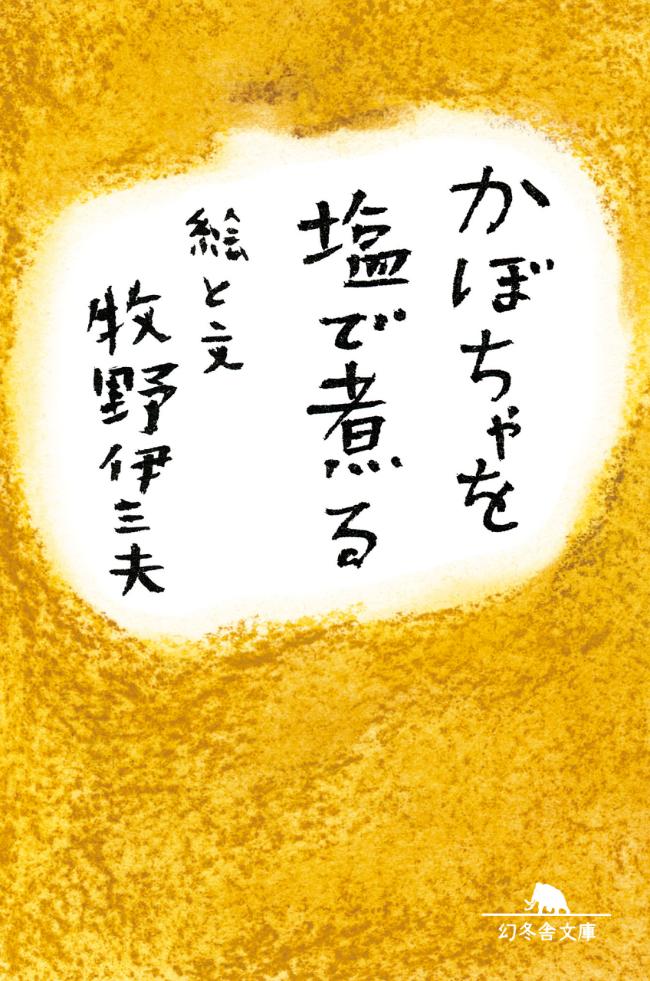 かぼちゃを
塩で煮る
絵と文
牧野伊三夫
幻冬舎文庫